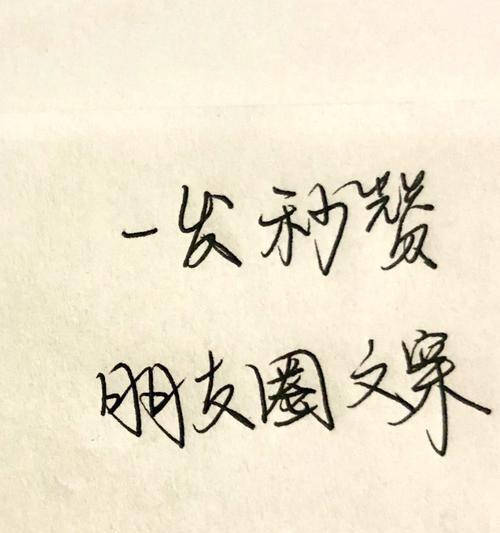 一发秒赞
朋友圈文案